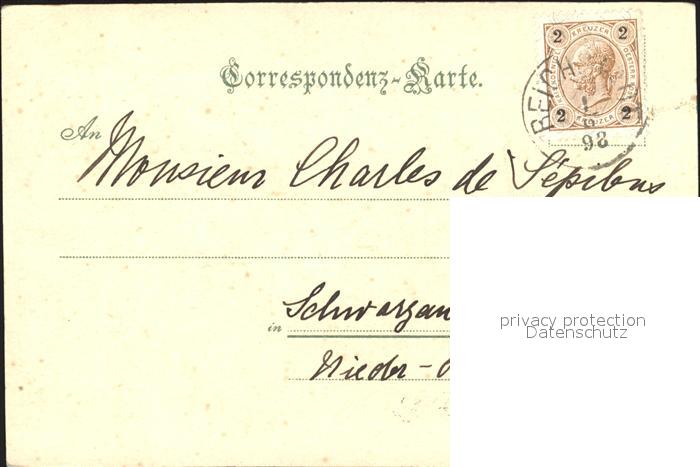 Correspondenz-Karte.
2 KREUZER 2
2 KREUZER 2
REICH
98
An Monsieur Charles de Sépibus
in Schwarzau
Nieder-
privacy protection
Datenschutz